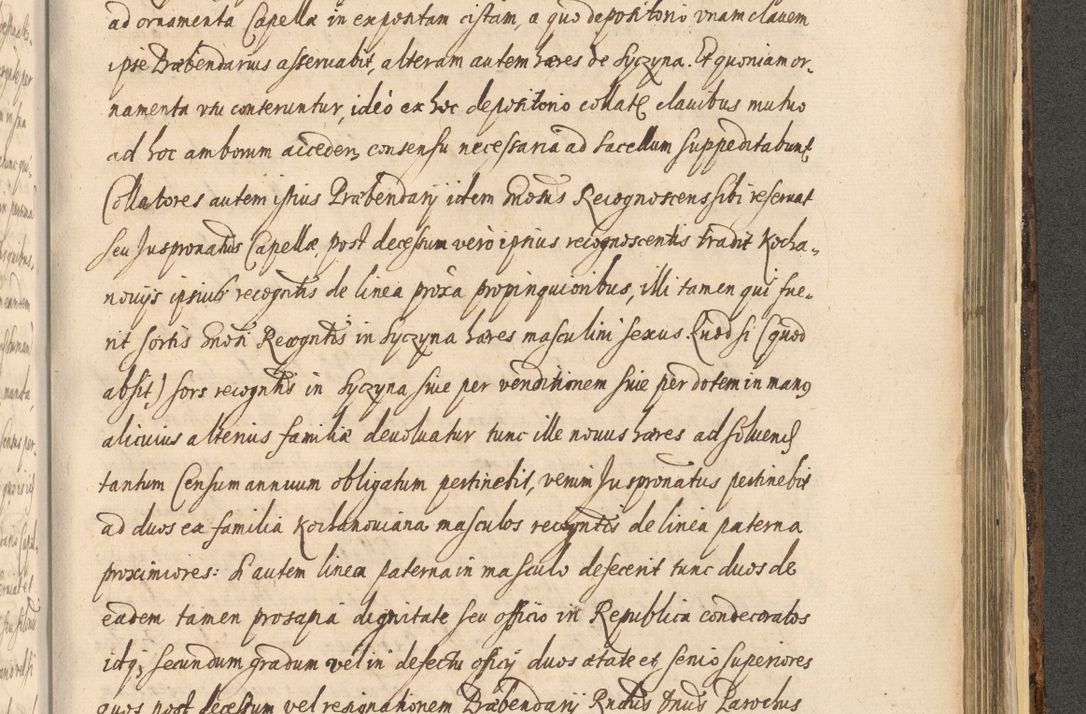 ad ornamenta Capellæ in expositam cistam, a quo depositorio vnam clauem
ipse Præbendarius asseruabit, alteram autem hæres de Syczyna. Et quoniam or-
namenta vsu conteruntur, ideò ex hoc depositorio collatę clauibus mutuo
ad hoc amborum acceden, consensu necessaria ad sacellum suppeditabunt
Collatores autem istius Præbendarij idem Gnosus Recognoscens sibi reseruat
seu Juspronatus Capellæ, post decessum verò ipsius recognoscentis tradit Kocha-
nouijs ipsius recogntis de linea proxa propinquioribus, illi tamen qui fue-
rit sortis Gnosi Recogntis in Syczyna hæres masculini sexus. Quod si (quod
absit) sors recogntis in Syczyna siue per venditionem siue per dotem in manꝯ
alicuius alterius familiæ deuoluatur tunc ille nouus hæres ad soluend
tantum Censum annuum obligatum pertinebit, verum Juspronatus pertinebit
ad duos ex familia Kochanouiana masculos recogntis de linea paterna
proximiores: si autem linea paterna in masculo defecerit tunc duos de
eadem tamen prosapiâ dignitate seu officio in Republica condecoratos
idq; secundum gradum vel in defectu officij duos ætate et senio superiores
quos post decessum vel resignationem Præbendarij Rndus Dnus Parochus